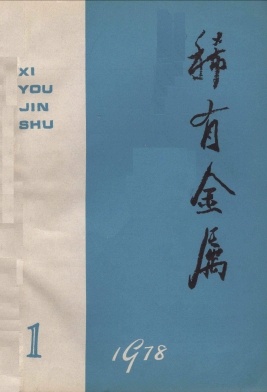 XI
YOU
JIN
SHU
稀有金属
1
1978